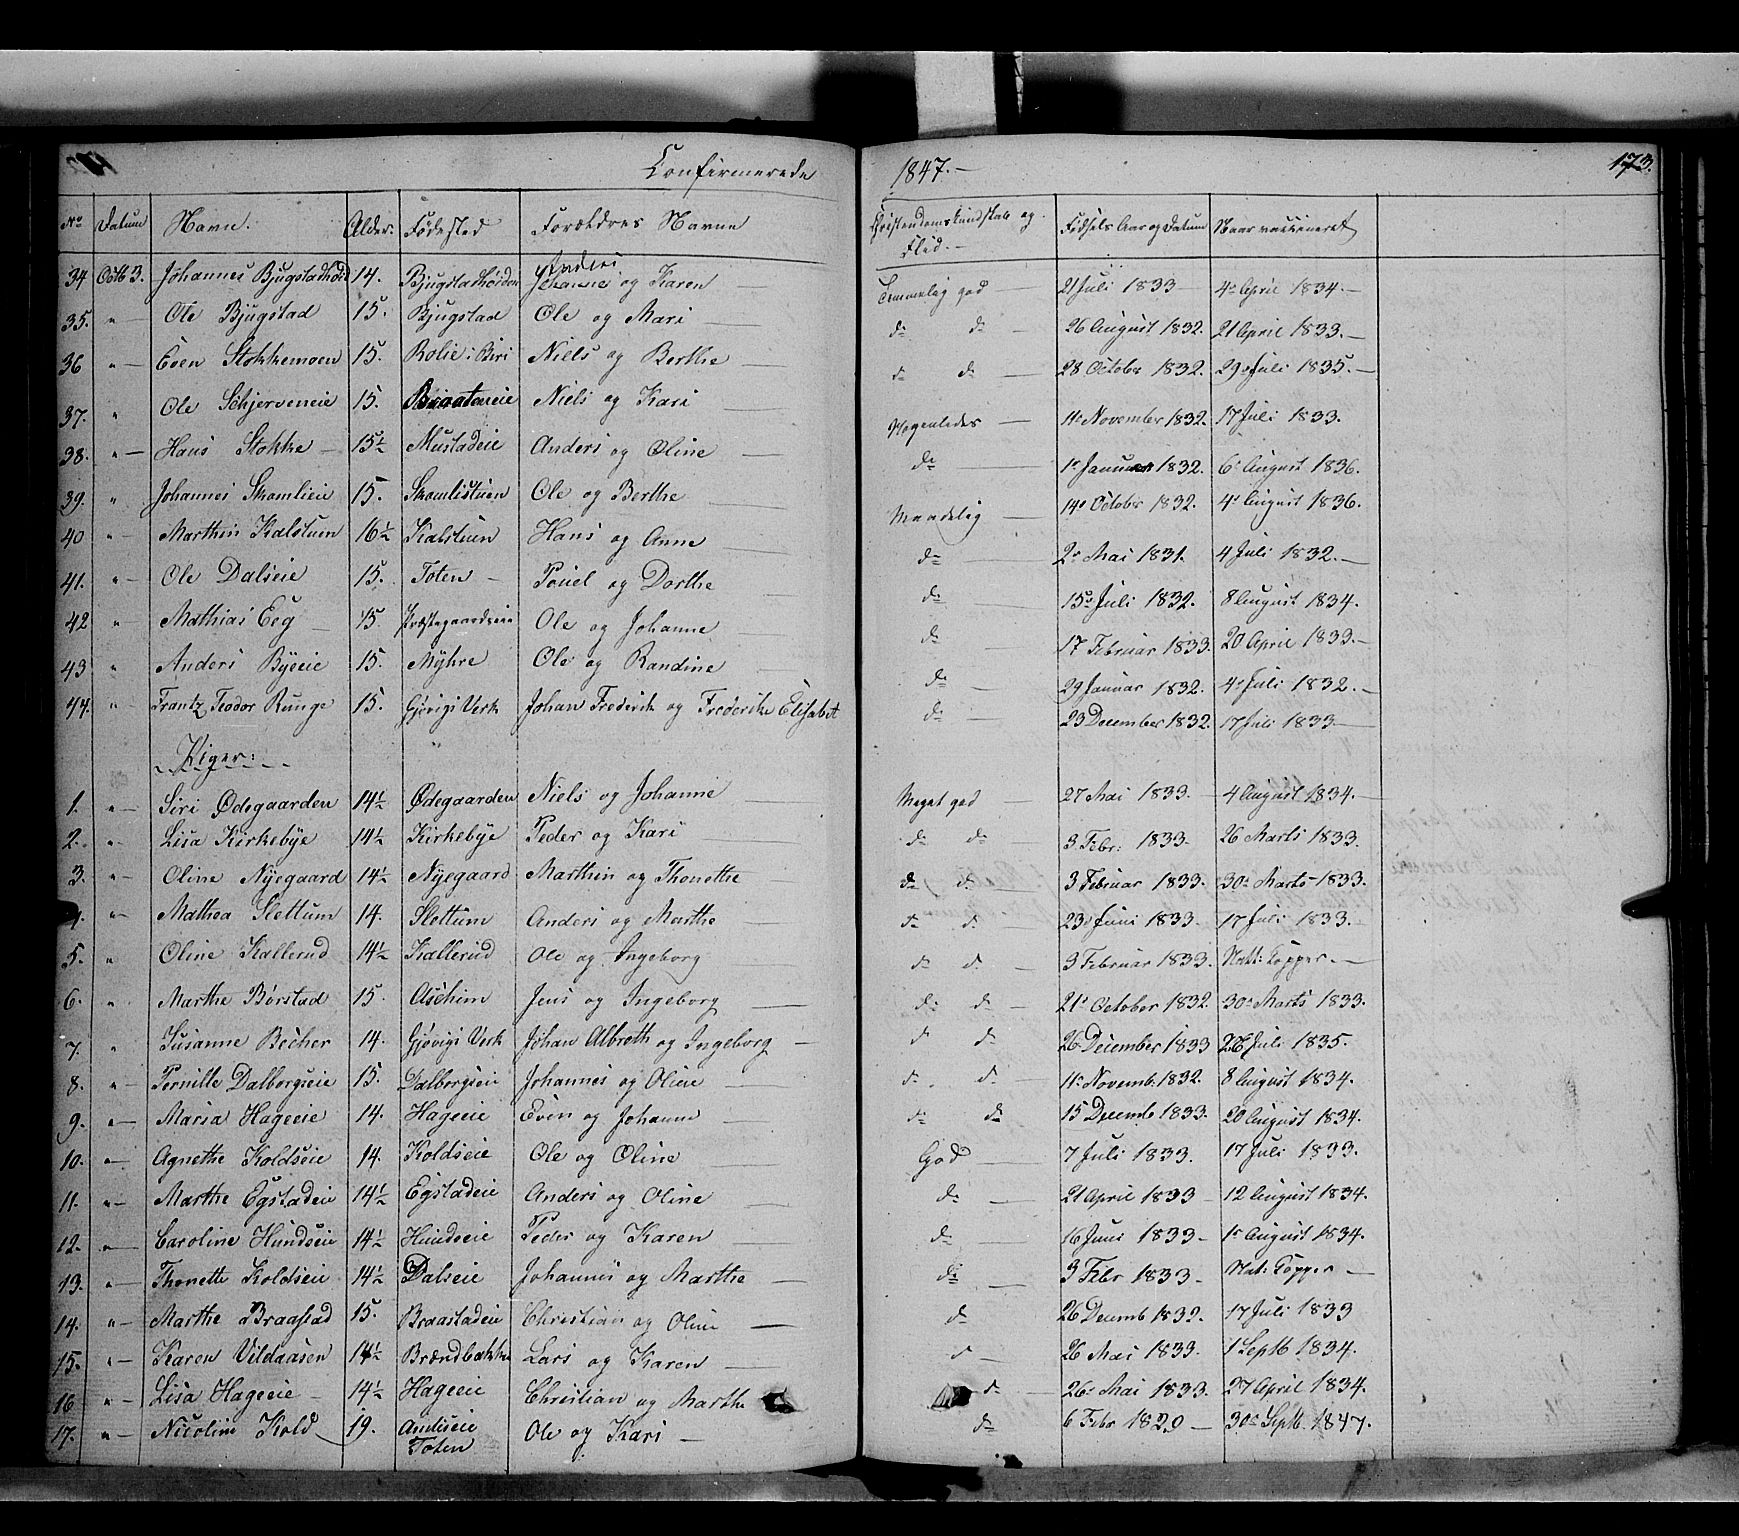 Confirmerede 1847.- 173.
No Datum Navn. Alder. Fødested Forældres Navne Christendomskundskab og Flid.- Fødsels Aar og Datum Naar vaccineret
34 Octb 3. Johannes Bjugstadhøid 14. Bjugstadhøiden Anders og Karen Temmelig god 21 Juli 1833 4de April 1834.-
35. " Ole Bjugstad 15. Bjugstad Ole og Mari do do 26 August 1832. 21 April 1833.-
36 " Even Stokkemoen 15. Rolie i Biri Niels og Berthe do do 28 October 1832. 29de Juli 1835.-
37. " Ole Schjerveneie 15. Braateneie Niels og Kari Nogenledes 11te November 1832. 17 Juli 1833.
38. " Hans Stokke 15½ Mustadeie Anders og Oline do 1ste Januar 1832. 6te August 1836.
39. " Johannes Skomlieie 15. Skomlistuen Ole og Berthe Maadelig 14de October 1832. 4de August 1836.
40 " Marthin Kalstuen 16½ Kalstuen Hans og Anne do 2den Mai 1831. 4 Juli 1832.-
41. " Ole Dalseie 15. Toten Pouel og Dorthe do 15de Juli 1832. 8 August 1834.
42 " Mathias Eeg 15. Præstegaardseie Ole og Johanne do 17 Februar 1833. 20 April 1833.-
43 " Anders Byeeie 15. Myhre Ole og Randine do 29 Januar 1832. 4de Juli 1832.-
44. " Frantz Teodor Runge 15. Gjøvigs Verk Johan Frederik og Frederikke Elisabet do 23 December 1832. 17 Juli 1833
Piger:
1. " Siri Ødegaarden 14½ Ødegaarden Niels og Johanne Meget god 27 Mai 1833 4 August 1834.-
2. " Lisa Kirkebye 14½ Kirkebye Peder og Kari do do 3 Febr: 1833 26 Marts 1833.
3. " Oline Nyegaard 14½ Nyegaard Marthin og Thonette do do 3 Februar 1833. 30te Marts 1833.
4. " Mathea Slettum 14. Slettum Anders og Marthe do do 23de Juni 1833 17 Juli 1833.
5. " Oline Kallerud 14½ Kallerud Ole og Ingeborg do do 3 Februar 1833. Nat: Kopper.-
6. " Marthe Børstad 15. Aschim Jens og Ingeborg do do 21de October 1832. 30te Marts 1833.
7. " Susanne Becher 14. Gjøvigs Verk Johan Albreth og Ingeborg do do 26 December 1833 28 Juli 1835.
8. " Pernille Dalborgseie 15. Dalborgseie Johannes og Oline do do 11te Novemb. 1832. 8 August 1834.
9. " Marsa Hageeie 14. Hageeie Even og Johanne do do 15 Decemb 1833. 20 August 1834.
10. " Agnethe Koldseie 14. Koldseie Ole og Oline God 7 Juli 1833. 17 Juli 1833.
11. " Marthe Egstadeie 14½ Egstadeie Anders og Oline do 21 April 1833 12 August 1834.
12. " Caroline Hundseie 14½ Hundseie Peder og Karen do 16 Juni 1833 1ste August 1834.
13. " Thonette Koldseie 14½ Dalseie Johannes og Marthe do 3 Febr 1833 Nat: Kopper
14. " Marthe Braastad 15. Braastadeie Christian og Oline do 26 Decemb 1832. 17 Juli 1833
15. " Karen Vildaasen 14½ Brændbakke Lars og Karen do 26 Mai 1833. 1 Septb 1834.
16 " Lisa Hageeie 14½ Hageeie Christian og Marthe do 26 Mai 1833. 27 April 1834.
17. " Nicoline Kold 19. Anliseie Toten Ole og Kari do 6 Febr 1829 30te Septb 1847.